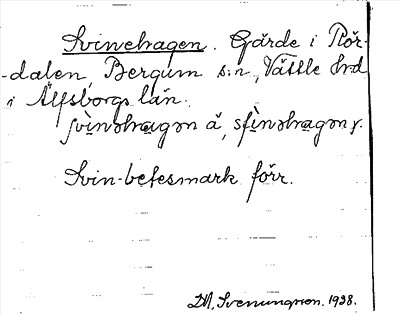 Svinehagen. Gärde i Rör-
-dalen, Bergum s:n, Vättle hrd
i Älfsborgs län.
svìnəhagən å, sfìnəhagən y.
Svin-betesmark förr.
Svenungsson. 1928.